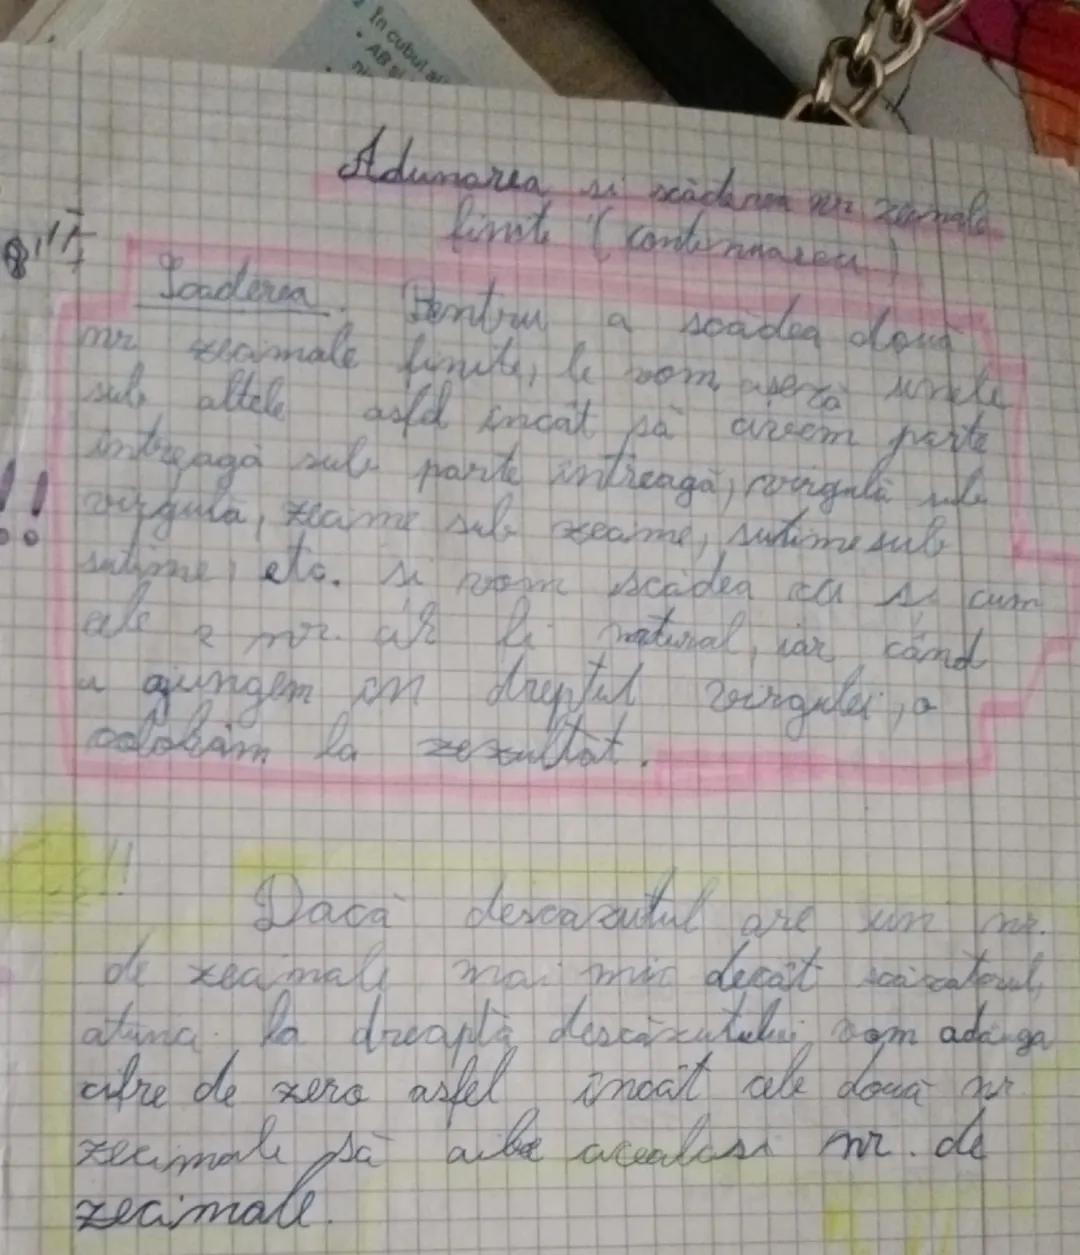 In cubul al
• AB și
Adunarea si scăderea nr zecimale
finite (continuarea)
!!
Scaderea. Pentru a scădea două
nr zecimale finite, le vom așeză unele
sub altele asfel incât să avem parte
intreagă sub parte intreagă, virgulă sub
virgulă, zecime sub zecime, sutime sub
sutime, etc. si vom scădea ca si cum
cele 2 nr. ar fi natural, iar când
ajungem in dreptul virgulei, o
colobăm la rezultat.
!!
Dacă descazutul are un nr.
de zecimale mai mic decât scăzatorul,
atunci la dreaptă descăzutului vom adăuga
cifre de zero asfel incât cele două nr
zecimale să aibe acealasi nr. de
zecimale.